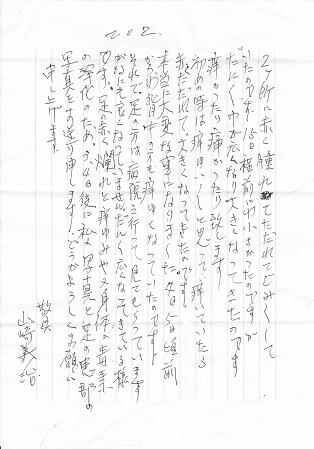 202.
2ヶ所に赤く腫れてただれてじみくして
いたのです。15日程前には小さかったのですが
だんだんと巾が広くなり大きくなってきたのです
痒かったり痛かったり致します
初めの時は痒ゆいしと思って痒っていたら
赤くただれて大きくなってきたのです。
本当に大変な事になりました。4、5日頃前
から背中の方も痒ゆくなっていたのです
それで足の方は病院え行って見てもらっています
がなにも良くなっていません。だんだん広くなってきている様
です。足の赤い爛れと痒ゆみや又身体の毒素
の浄化のため、3、4日後に私の写真と足の患部の
写真をお送り申します。どうかよろしくお願い
申し上げます。
敬具
山崎美治